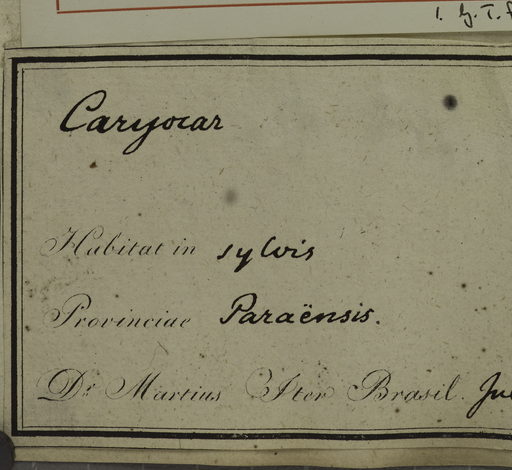 Caryocar
Habitat in sylvis
Provinciae Paraënsis.
Dr Martius Iter Brasil.